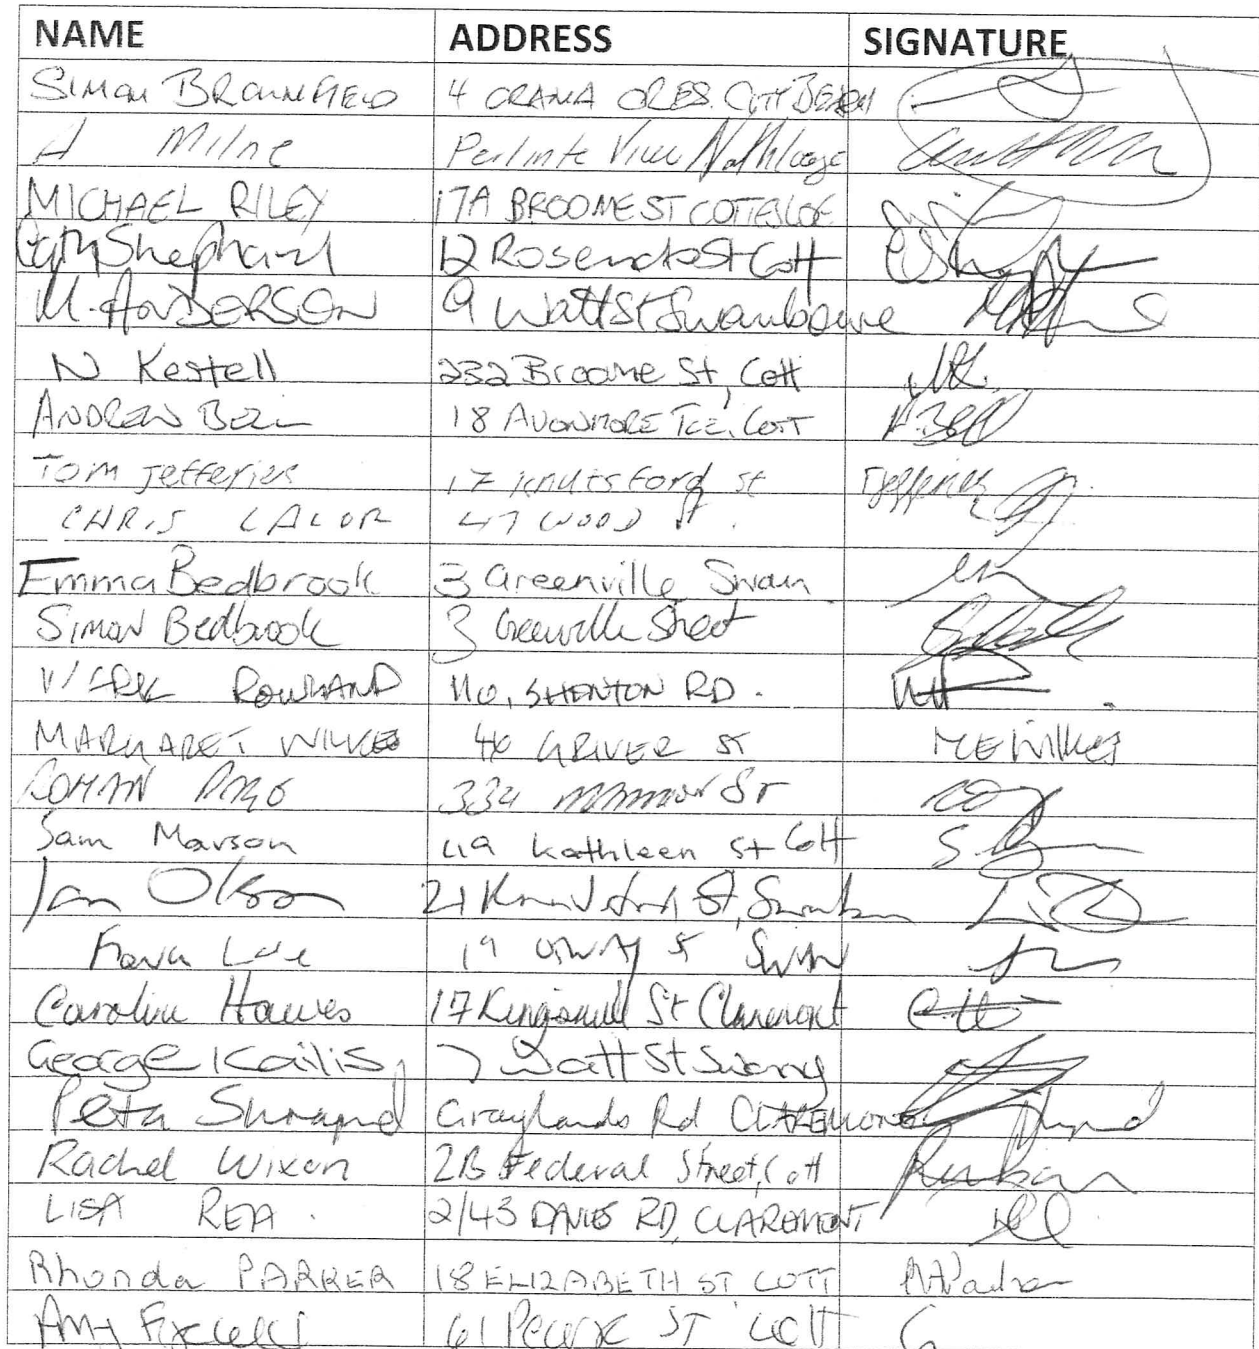 NAME ADDRESS SIGNATURE
SIMON BROWNFIELD 4 ORANA CRES. CITY BEACH
A Milne View
MICHAEL RILEY 17A BROOME ST COTTESLOE
Shephard 12 Rosendo St Cott
M. ANDERSON 9 Watt St Swanbourne
N Kestell 232 Broome St, Cott
ANDREW BELL 18 AVONMORE TCE, COTT A.Bell
TOM Jefferies 17 Knutsford st Tjefferies
CHRIS LALOR 47 WOOD ST.
Emma Bedbrook 3 Greenville Swan
Simon Bedbrook 3 Greenville Street
ROWLAND 110, SHENTON RD.
MARGARET WILKES 46 GRIVER ST M E Wilkes
ROMAN ST
Sam Marson 49 Kathleen St Cott
Ian Olson 21 Knutsford St,
19 ST SWAN
Caroline Hawes 17 Kingsmill St Claremont
George Kailis 7 Watt St Swany
Peta Shrapnel Graylands Rd CLAREMONT
Rachel Wixon 2B Federal Street, Cott
LISA REA. 2/43 DAVIES RD, CLAREMONT
Rhonda PARKER 18 ELIZABETH ST COTT RAParker
Amy 61 ST Cott